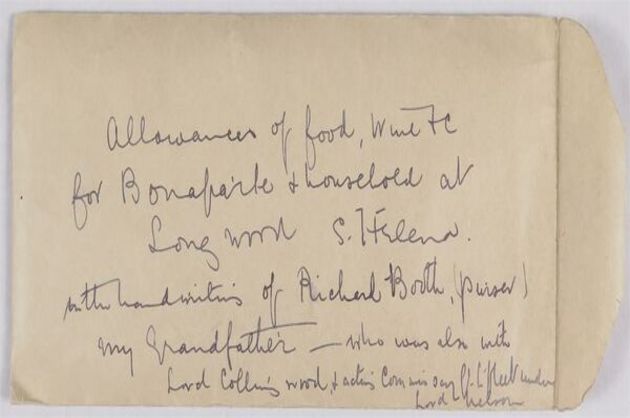 Allowances of food, Wine &c
for Bonaparte & household at
Longwood S. Helena.
in the handwriting of Richard Booth, (purser)
my Grandfather — who was also with
Lord Collingwood, & acting Commissary Fleet under
Lord Nelson